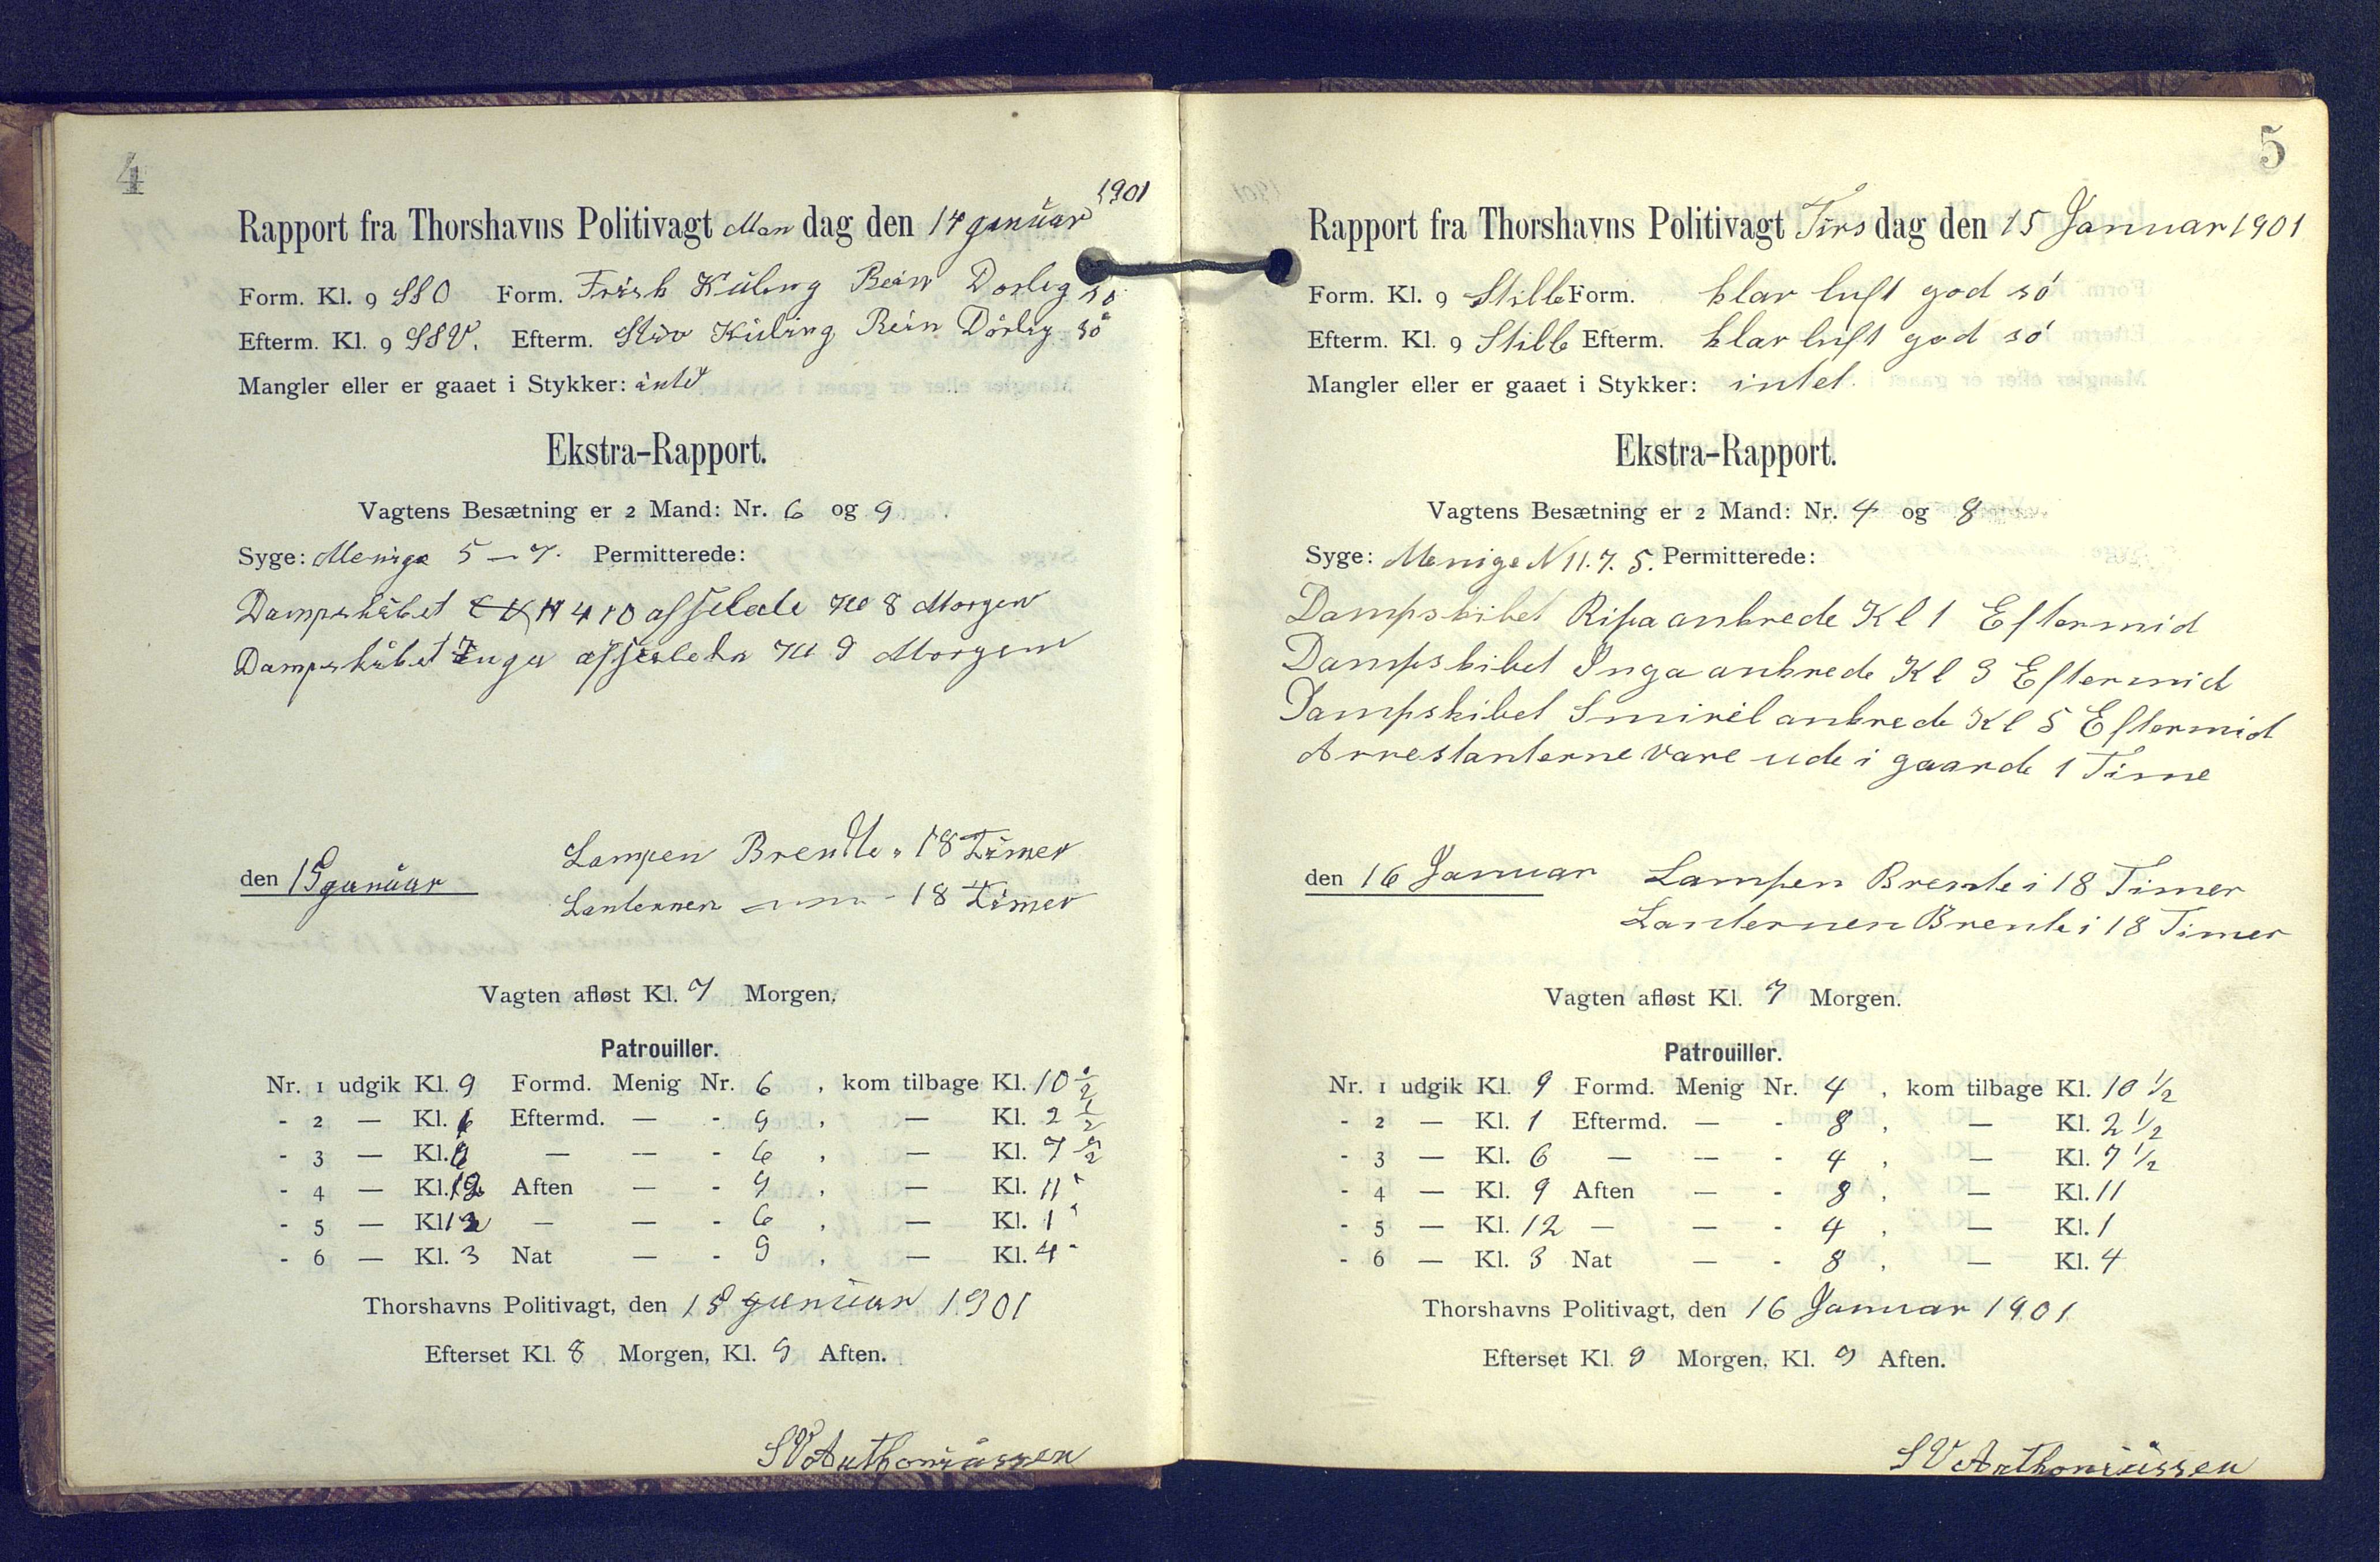 4
1901
Rapport fra Thorshavns Politivagt Man dag den 14 januar
Form. Kl. 9 SSO Form. Frisk Kuling Dorlig so
Efterm. Kl. 9 SSV. Efterm. Stiv Kuling Dórlig só
Mangler eller er gaaet i Stykker: intet
Ekstra-Rapport.
Vagtens Besætning er 2 Mand: Nr. 6 og 9
Syge: Menige 5 — 7. Permitterede:
Dampskibet N 410 afsejlede Kl 8 Morgen
Dampskibet Inga Kl 9 Morgen
Lampen Brente 18 Timer
den 15 januar
Lanternen — 18 Timer
Vagten afløst Kl. 7 Morgen.
Patrouiller.
Nr. 1 udgik Kl. 9 Formd. Menig Nr. 6 , kom tilbage Kl. 10 ½
- 2 — Kl. Eftermd. — - 9 , — Kl. 2 ½
- 3 — Kl. — — - 6 , — Kl. 7 ½
- 4 — Kl. Aften — - 9 , — Kl. 11
- 5 — Kl. 12 — — - 6 , — Kl. 1
- 6 — Kl. 3 Nat — - 9 , — Kl. 4
Thorshavns Politivagt, den 15 januar 1901
Efterset Kl. 8 Morgen, Kl. 9 Aften.
SV Anthoniussen
5
Rapport fra Thorshavns Politivagt Tirs dag den 15 Januar 1901
Form. Kl. 9 Stille Form. klar luft god só
Efterm. Kl. 9 Stille Efterm. klar luft god só
Mangler eller er gaaet i Stykker: intet
Ekstra-Rapport.
Vagtens Besætning er 2 Mand: Nr. 4 og 8
Syge: Menige N 11. 7. 5. Permitterede:
Dampskibet Ripa ankrede Kl 1 Eftermid
Dampskibet Inga ankrede Kl 3 Eftermid
Dampskibet Smiril ankrede Kl 5 Eftermid
Arrestanterne vare ude i gaarde 1 Time
den 16 Januar Lampen Brente i 18 Timer
Lanternen Brente i 18 Timer
Vagten afløst Kl. 7 Morgen.
Patrouiller.
Nr. 1 udgik Kl. 9 Formd. Menig Nr. 4 , kom tilbage Kl. 10 ½
- 2 — Kl. 1 Eftermd. — - 8 , — Kl. 2 ½
- 3 — Kl. 6 — — - 4 , — Kl. 7 ½
- 4 — Kl. 9 Aften — - 8 , — Kl. 11
- 5 — Kl. 12 — — - 4 , — Kl. 1
- 6 — Kl. 3 Nat — - 8 , — Kl. 4
Thorshavns Politivagt, den 16 Januar 1901
Efterset Kl. 9 Morgen, Kl. 9 Aften.
SV Anthoniussen